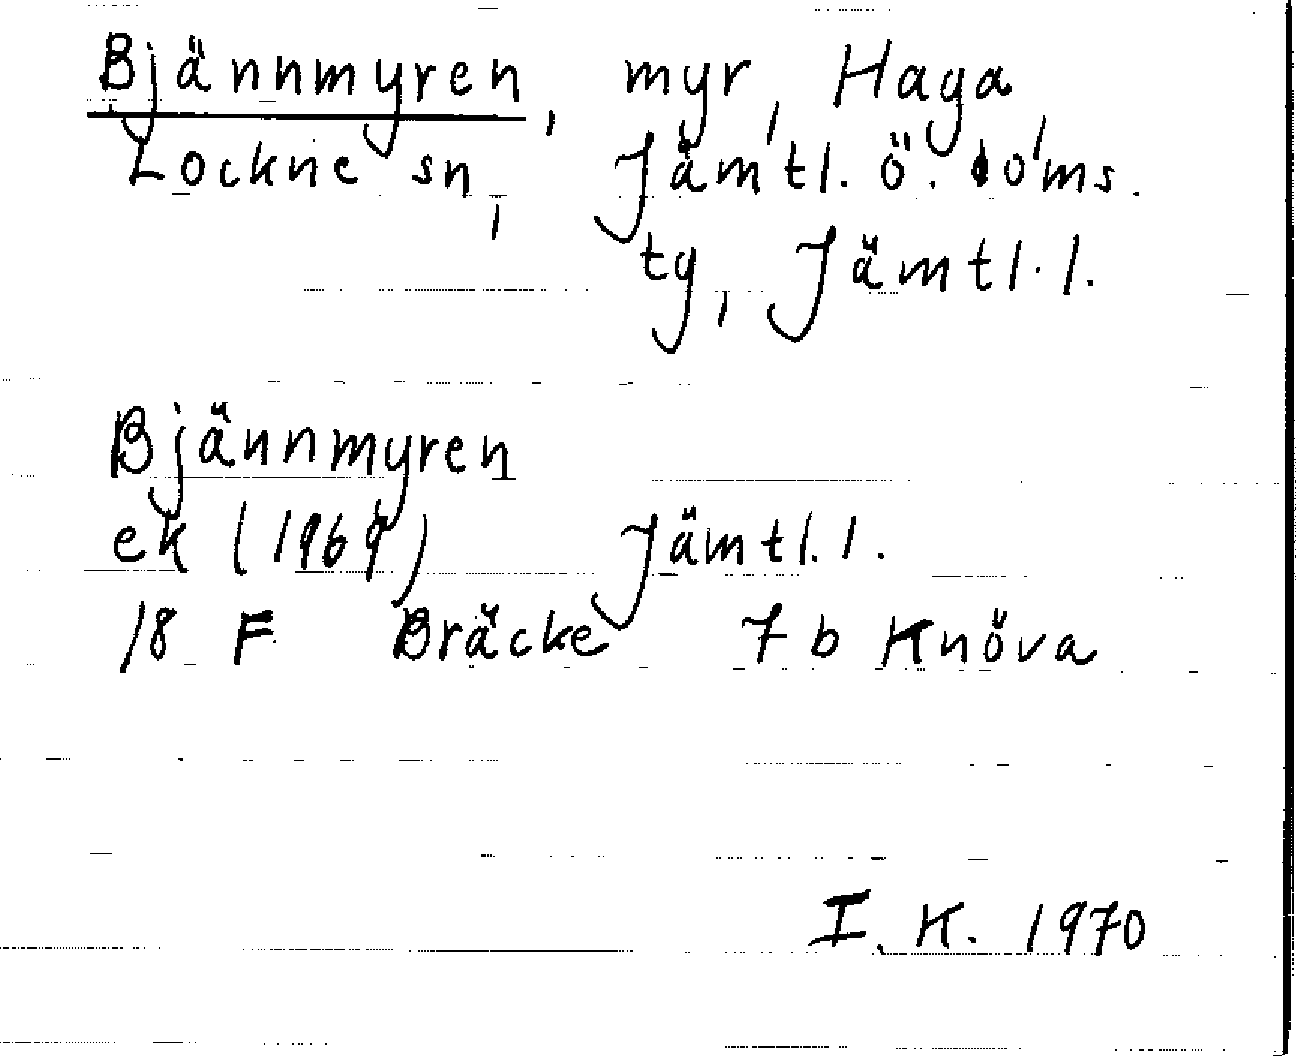 Bjännmyren, myr, Haga,
Lockne sn, Jämtl. ö. doms.
tg, Jämtl. l.
Bjännmyren
ek (1969) Jämtl. l.
18 F Bräcke 7 b Knöva
I. K. 1970